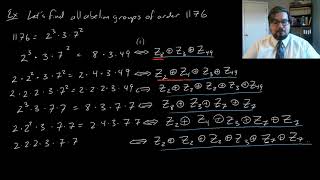 Ex Let's find all abelian groups of order 1176
1176 = 2³·3·7²
(1)
2³·3·7² = 8·3·49 ⟺ Z₈ ⊕ Z₃ ⊕ Z₄₉
2·2²·3·7² = 2·4·3·49 ⟺ Z₂ ⊕ Z₄ ⊕ Z₃ ⊕ Z₄₉
2·2·2·3·7² = 2·2·2·3·49 ⟺ Z₂ ⊕ Z₂ ⊕ Z₂ ⊕ Z₃ ⊕ Z₄₉
2³·3·7·7 = 8·3·7·7 ⟺ Z₈ ⊕ Z₃ ⊕ Z₇ ⊕ Z₇
2·2²·3·7·7 = 2·4·3·7·7 ⟺ Z₂ ⊕ Z₄ ⊕ Z₃ ⊕ Z₇ ⊕ Z₇
2·2·2·3·7·7 ⟺ Z₂ ⊕ Z₂ ⊕ Z₂ ⊕ Z₃ ⊕ Z₇ ⊕ Z₇